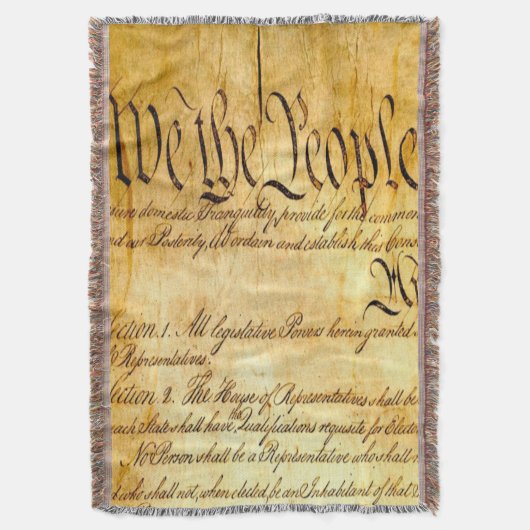 We the People
sure domestic Tranquility, provide for the common
nd our Posterity, do ordain and establish this Cons
ection. 1. All legislative Powers herein granted
f Representatives.
ection. 2. The House of Representatives shall be
each State shall have the Qualifications requisite for Elector
No Person shall be a Representative who shall n
d who shall not, when elected, be an Inhabitant of that